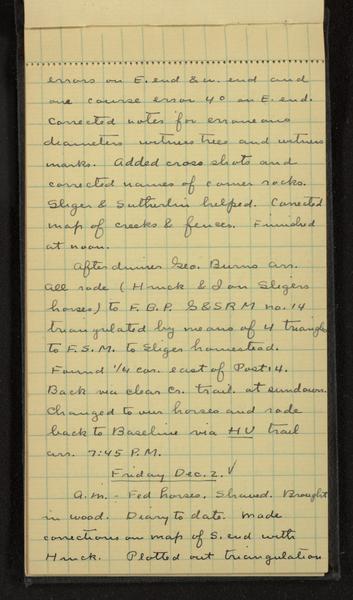 errors on E. end & w. end and
one course error 4° on E. end.
Corrected notes for erroneous
diameters witness trees and witness
marks. Added cross shots and
corrected names of corner rocks.
Sliger & Sutherlin helped. Corrected
map of creeks & fences. Finished
at noon.
After dinner Geo. Burns arr.
All rode (Hmck & I on Sligers
horses) to F.B.P. S&SRM no. 14
triangulated by means of 4 triangles
to F.S.M. to Sliger homestead.
Found 1/4 cor. east of Post 14.
Back via Clear Cr. trail at sundown.
Changed to our horses and rode
back to Baseline via HU trail
arr. 7:45 P.M.
Friday Dec. 2. √
A.M. - Fed horses. Shaved. Brought
in wood. Diary to date. Made
corrections on map of S. end with
Hmck. Plotted out triangulation